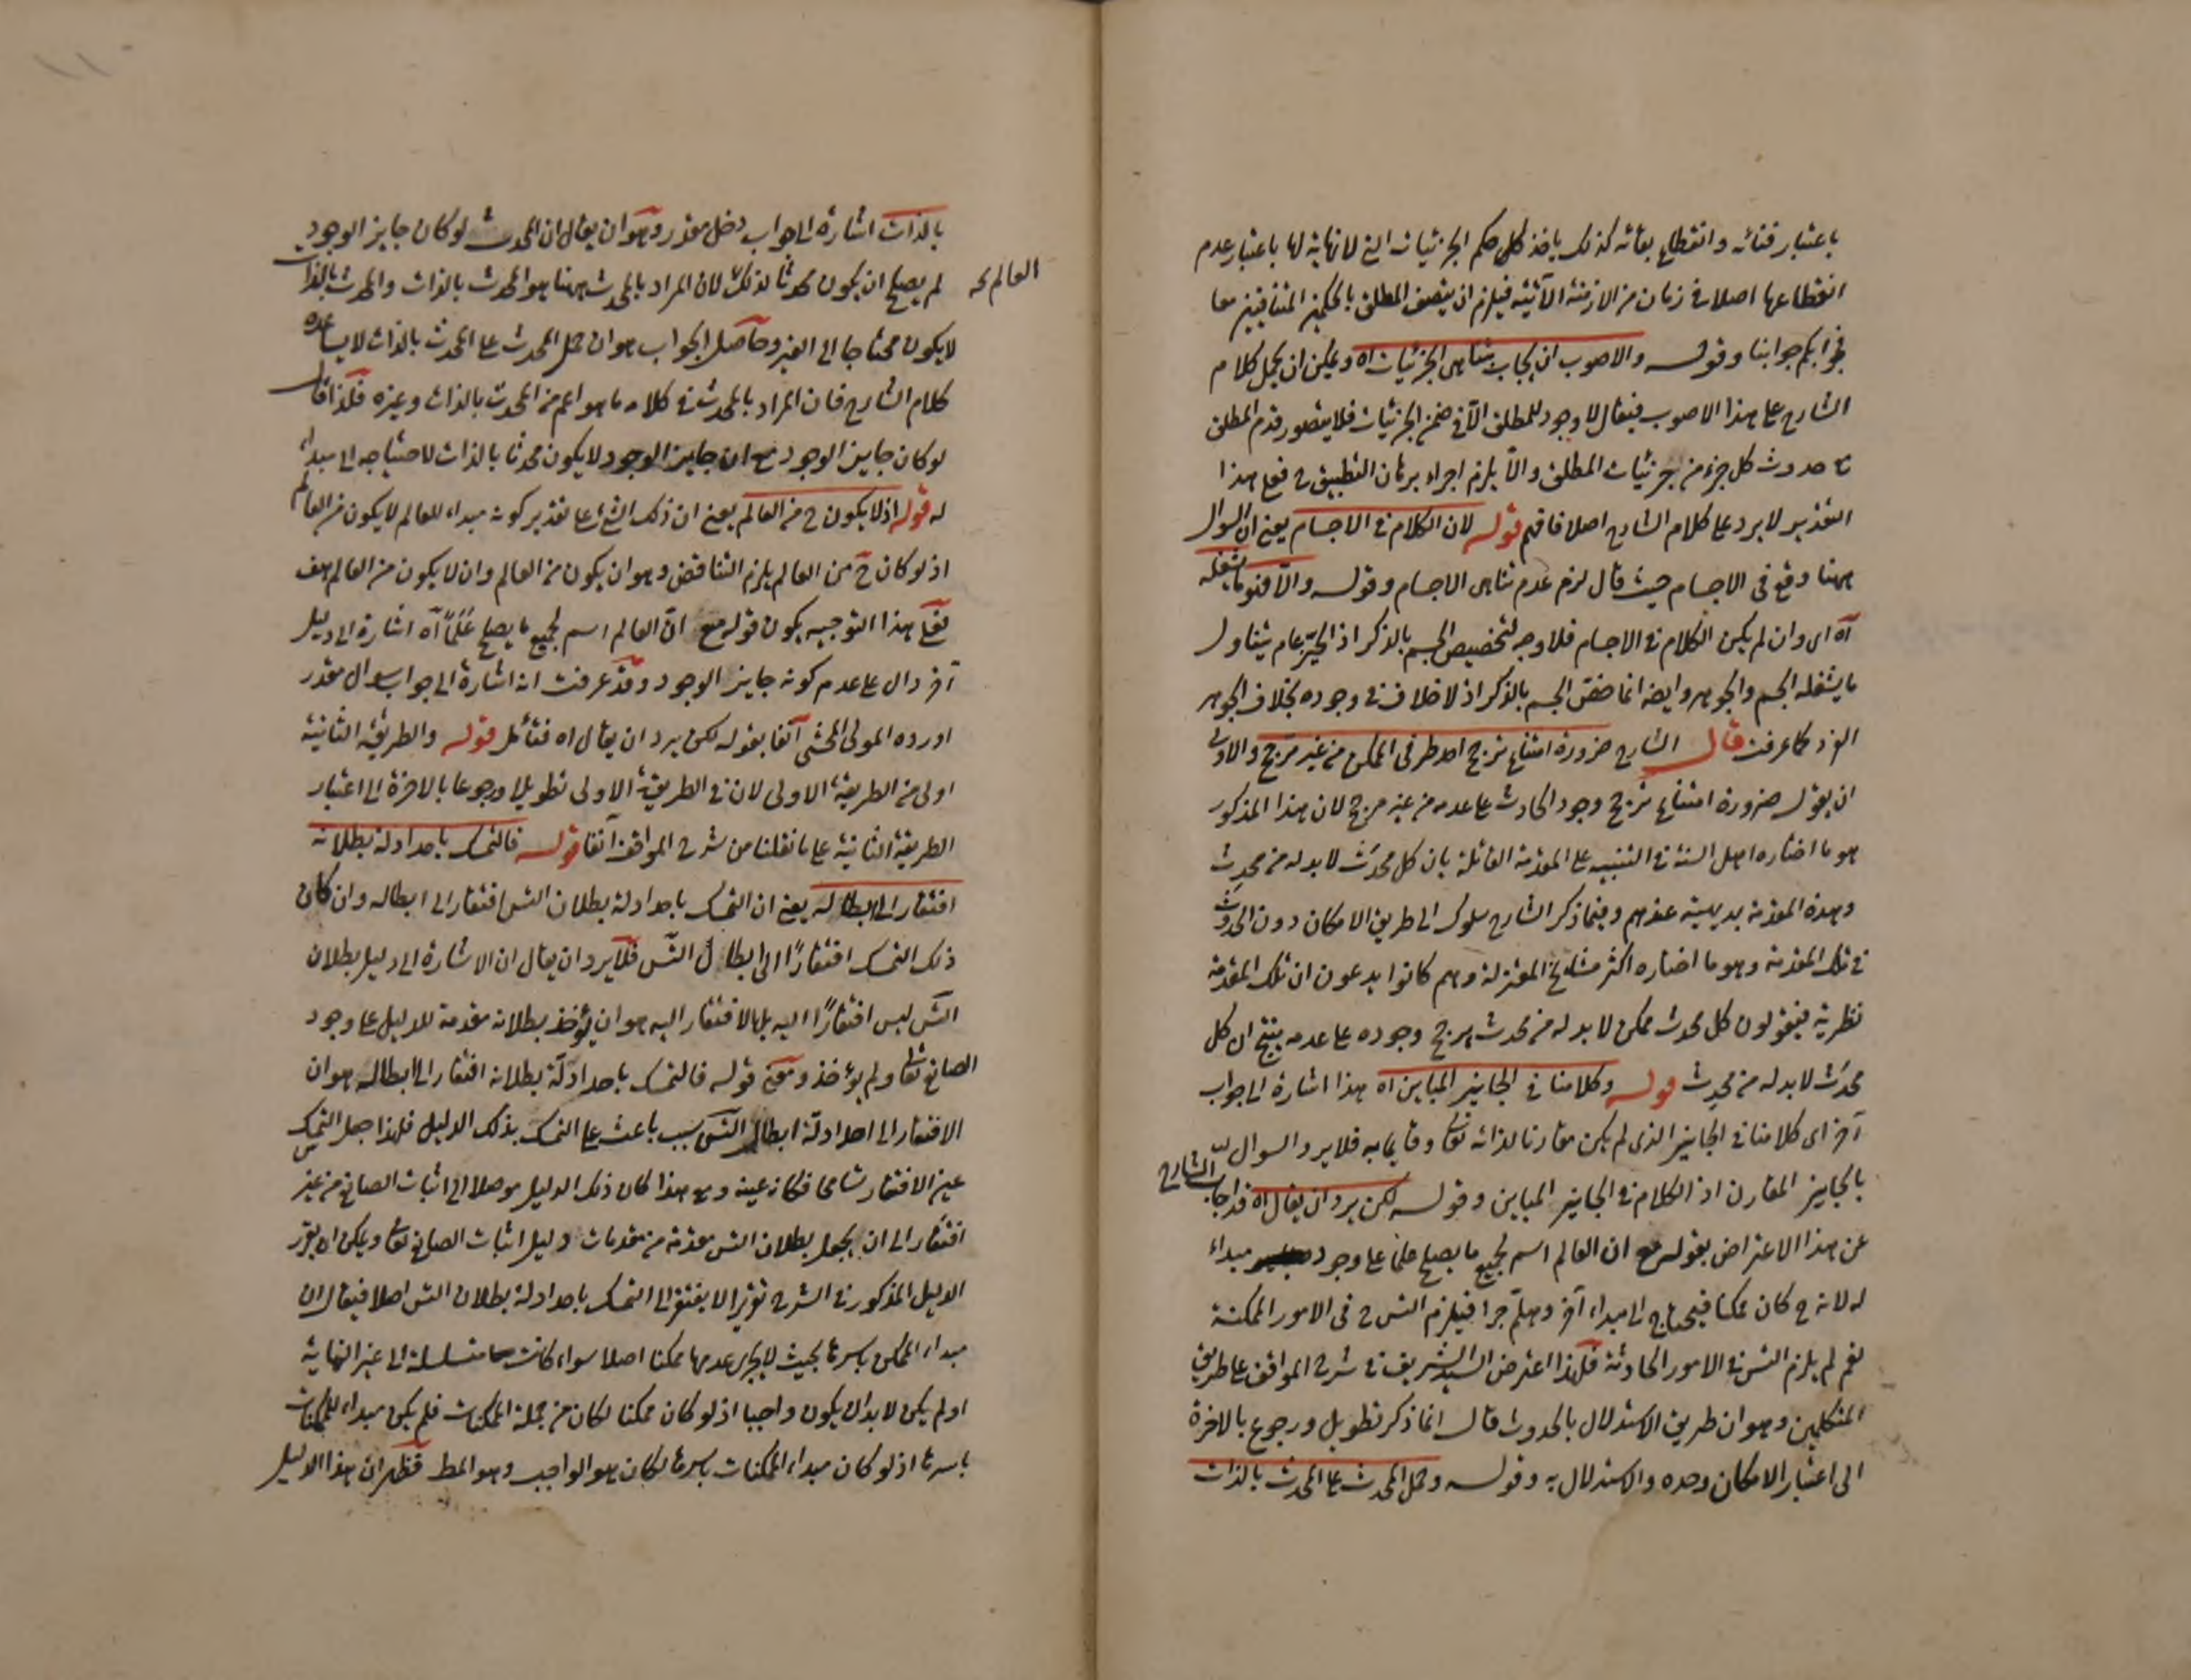 باعتبار فنائه وانقطاع بقائه كذلك ياخذ كل حكم الجزئيات التى لا نهاية لها باعتبار عدم
انقطاعها اصلا فى زمان من الازمنة الآتية فيلزم ان يتصف المطلق بالحكمين المتنافيين معا
فجوابكم جوابنا وقوله والاصوب ان يجاب بتناهى الجزئيات اه ويمكن ان يحمل كلام
الشارح على هذا الاصوب فيقال لا وجود للمطلق الا فى ضمن الجزئيات فلا يتصور قدم المطلق
مع حدوث كل جزء من جزئيات المطلق والا يلزم اجراء برهان التطبيق ح فعلى هذا
التقدير لا يرد على كلام الشارح اصلا فافهم قوله لان الكلام فى الاجسام يعنى ان السوال
ههنا وقع فى الاجسام حيث قال لزم عدم تناهى الاجسام وقوله والا فهو ما يشغله
آه اى وان لم يكن الكلام فى الاجسام فلا وجه لتخصيص الجسم بالذكر اذ الحيّز عام يتناول
ما يشغله الجسم والجوهر وايضا انما خصّ الجسم بالذكر اذ لا خلاف فى وجوده بخلاف الجوهر
الفرد كما عرفت قال الشارح ضرورة امتناع ترجح احد طرفى الممكن من غير مرجح والاولى
ان يقول ضرورة امتناع ترجح وجود الحادث على عدمه من غير مرجح لان هذا المذكور
هو ما اختاره اهل السنة فى التنبيه على المقدمة القائلة بان كل محدَث لا بد له من محدِث
وهذه المقدمة بديهية عندهم وفيما ذكر الشارح سلوك الى طريق الامكان دون الحدوث
فى تلك المقدمة وهو ما اختاره اكثر مشايخ المعتزلة وهم كانوا يدعون ان تلك المقدمة
نظرية فيقولون كل محدث ممكن لا بد له من محدث يرجح وجوده على عدمه ينتج ان كل
محدَث لا بد له من محدِث قوله وكلامنا فى الجايز المباين اه هذا اشارة الى جواب
آخر اى كلامنا فى الجايز الذى لم يكن مقارنا لذاته تعالى وقايما به فلا يرد السوال
بالجايز المقارن اذ الكلام فى الجايز المباين وقوله لكن يرد ان يقال اه قد اجاب الشارح
عن هذا الاعتراض بقوله مع ان العالم اسم لجميع ما يصلح علما على وجود مبداء
له لانه ح كان ممكنا فيحتاج الى مبداء آخر وهلمّ جرا فيلزم التس ح فى الامور الممكنة
نعم لم يلزم التس فى الامور الحادثة فلهذا اعترض السيد الشريف فى شرح المواقف على طريق
المتكلمين وهو ان طريق الاستدلال بالحدوث قال انما ذكر تطويل ورجوع بالاخرة
الى اعتبار الامكان وحده والاستدلال به وقوله وحمل المحدث على المحدث بالذات
بالذات اشارة الى جواب دخل مقدر وهو ان يقال ان المحدث لو كان جايز الوجود
لم يصلح ان يكون محدثا لذلك لان المراد بالمحدث ههنا هو المحدث بالذات والمحدث بالذات
العالم
لا يكون محتاجا الى الغير وحاصل الجواب هو ان حمل المحدث على المحدث بالذات لا يساعده
كلام الشارح فان المراد بالمحدث فى كلامه ما هو اعم من المحدث بالذات وغيره فلذا قال
لو كان جايز الوجود مع ان جايز الوجود لا يكون محدثا بالذات لاحتياجه الى مبداء
له قوله اذ لا يكون ح من العالم يعنى ان ذلك الشئ على تقدير كونه مبداء للعالم لا يكون من العالم
اذ لو كان ح من العالم يلزم التناقض وهو ان يكون من العالم وان لا يكون من العالم هف
فعلى هذا التوجيه يكون قوله مع انّ العالم اسم لجميع ما يصلح عَلَماً آه اشارة الى دليل
آخر دال على عدم كونه جايز الوجود وقد عرفت انه اشارة الى جواب سوال مقدر
اورده المولى المحشى آنفا بقوله لكن يرد ان يقال اه فتأمل قوله والطريقة الثانية
اولى من الطريقة الاولى لان فى الطريقة الاولى تطويلا ورجوعا بالاخرة الى اعتبار
الطريقة الثانية على ما نقلنا من شرح المواقف آنفا قوله فالتمسك باحد ادلة بطلانه
افتقار الى ابطاله يعنى ان التمسك باحد ادلة بطلان التس افتقار الى ابطاله وان كان
ذلك التمسك افتقارًا الى ابطال التس فلا يرد ان يقال ان الاشارة الى دليل بطلان
التس ليس افتقارًا اليه بل الافتقار اليه هو ان يؤخذ بطلانه مقدمة للدليل على وجود
الصانع تعالى ولم يؤخذ ومعنى قوله فالتمسك باحد ادلّة بطلانه افتقار الى ابطاله هو ان
الافتقار الى احد ادلة ابطال التس سبب باعث على التمسك بذلك الدليل فلهذا جعل التمسك
عين الافتقار تسامحا فكانه عينه ومع هذا كان ذلك الدليل موصلا الى اثبات الصانع من غير
افتقار الى ان يجعل بطلان التس مقدمة من مقدمات دليل اثبات الصانع تعالى ويمكن ان يقرر
الدليل المذكور فى الشرح تقريرا لا يفتقر الى التمسك باحد ادلة بطلان التس اصلا فيقال ان
مبداء الممكن باسرها بحيث لا يجرى عدمها ممكنا اصلا سواء كانت متسلسلة الى غير النهاية
او لم يكن لا بد ان يكون واجبا اذ لو كان ممكنا لكان من جملة الممكنات فلم يكن مبداء للممكنات
باسرها اذ لو كان مبداء الممكنات باسرها لكان هو الواجب وهو المط فظهر ان هذا الدليل